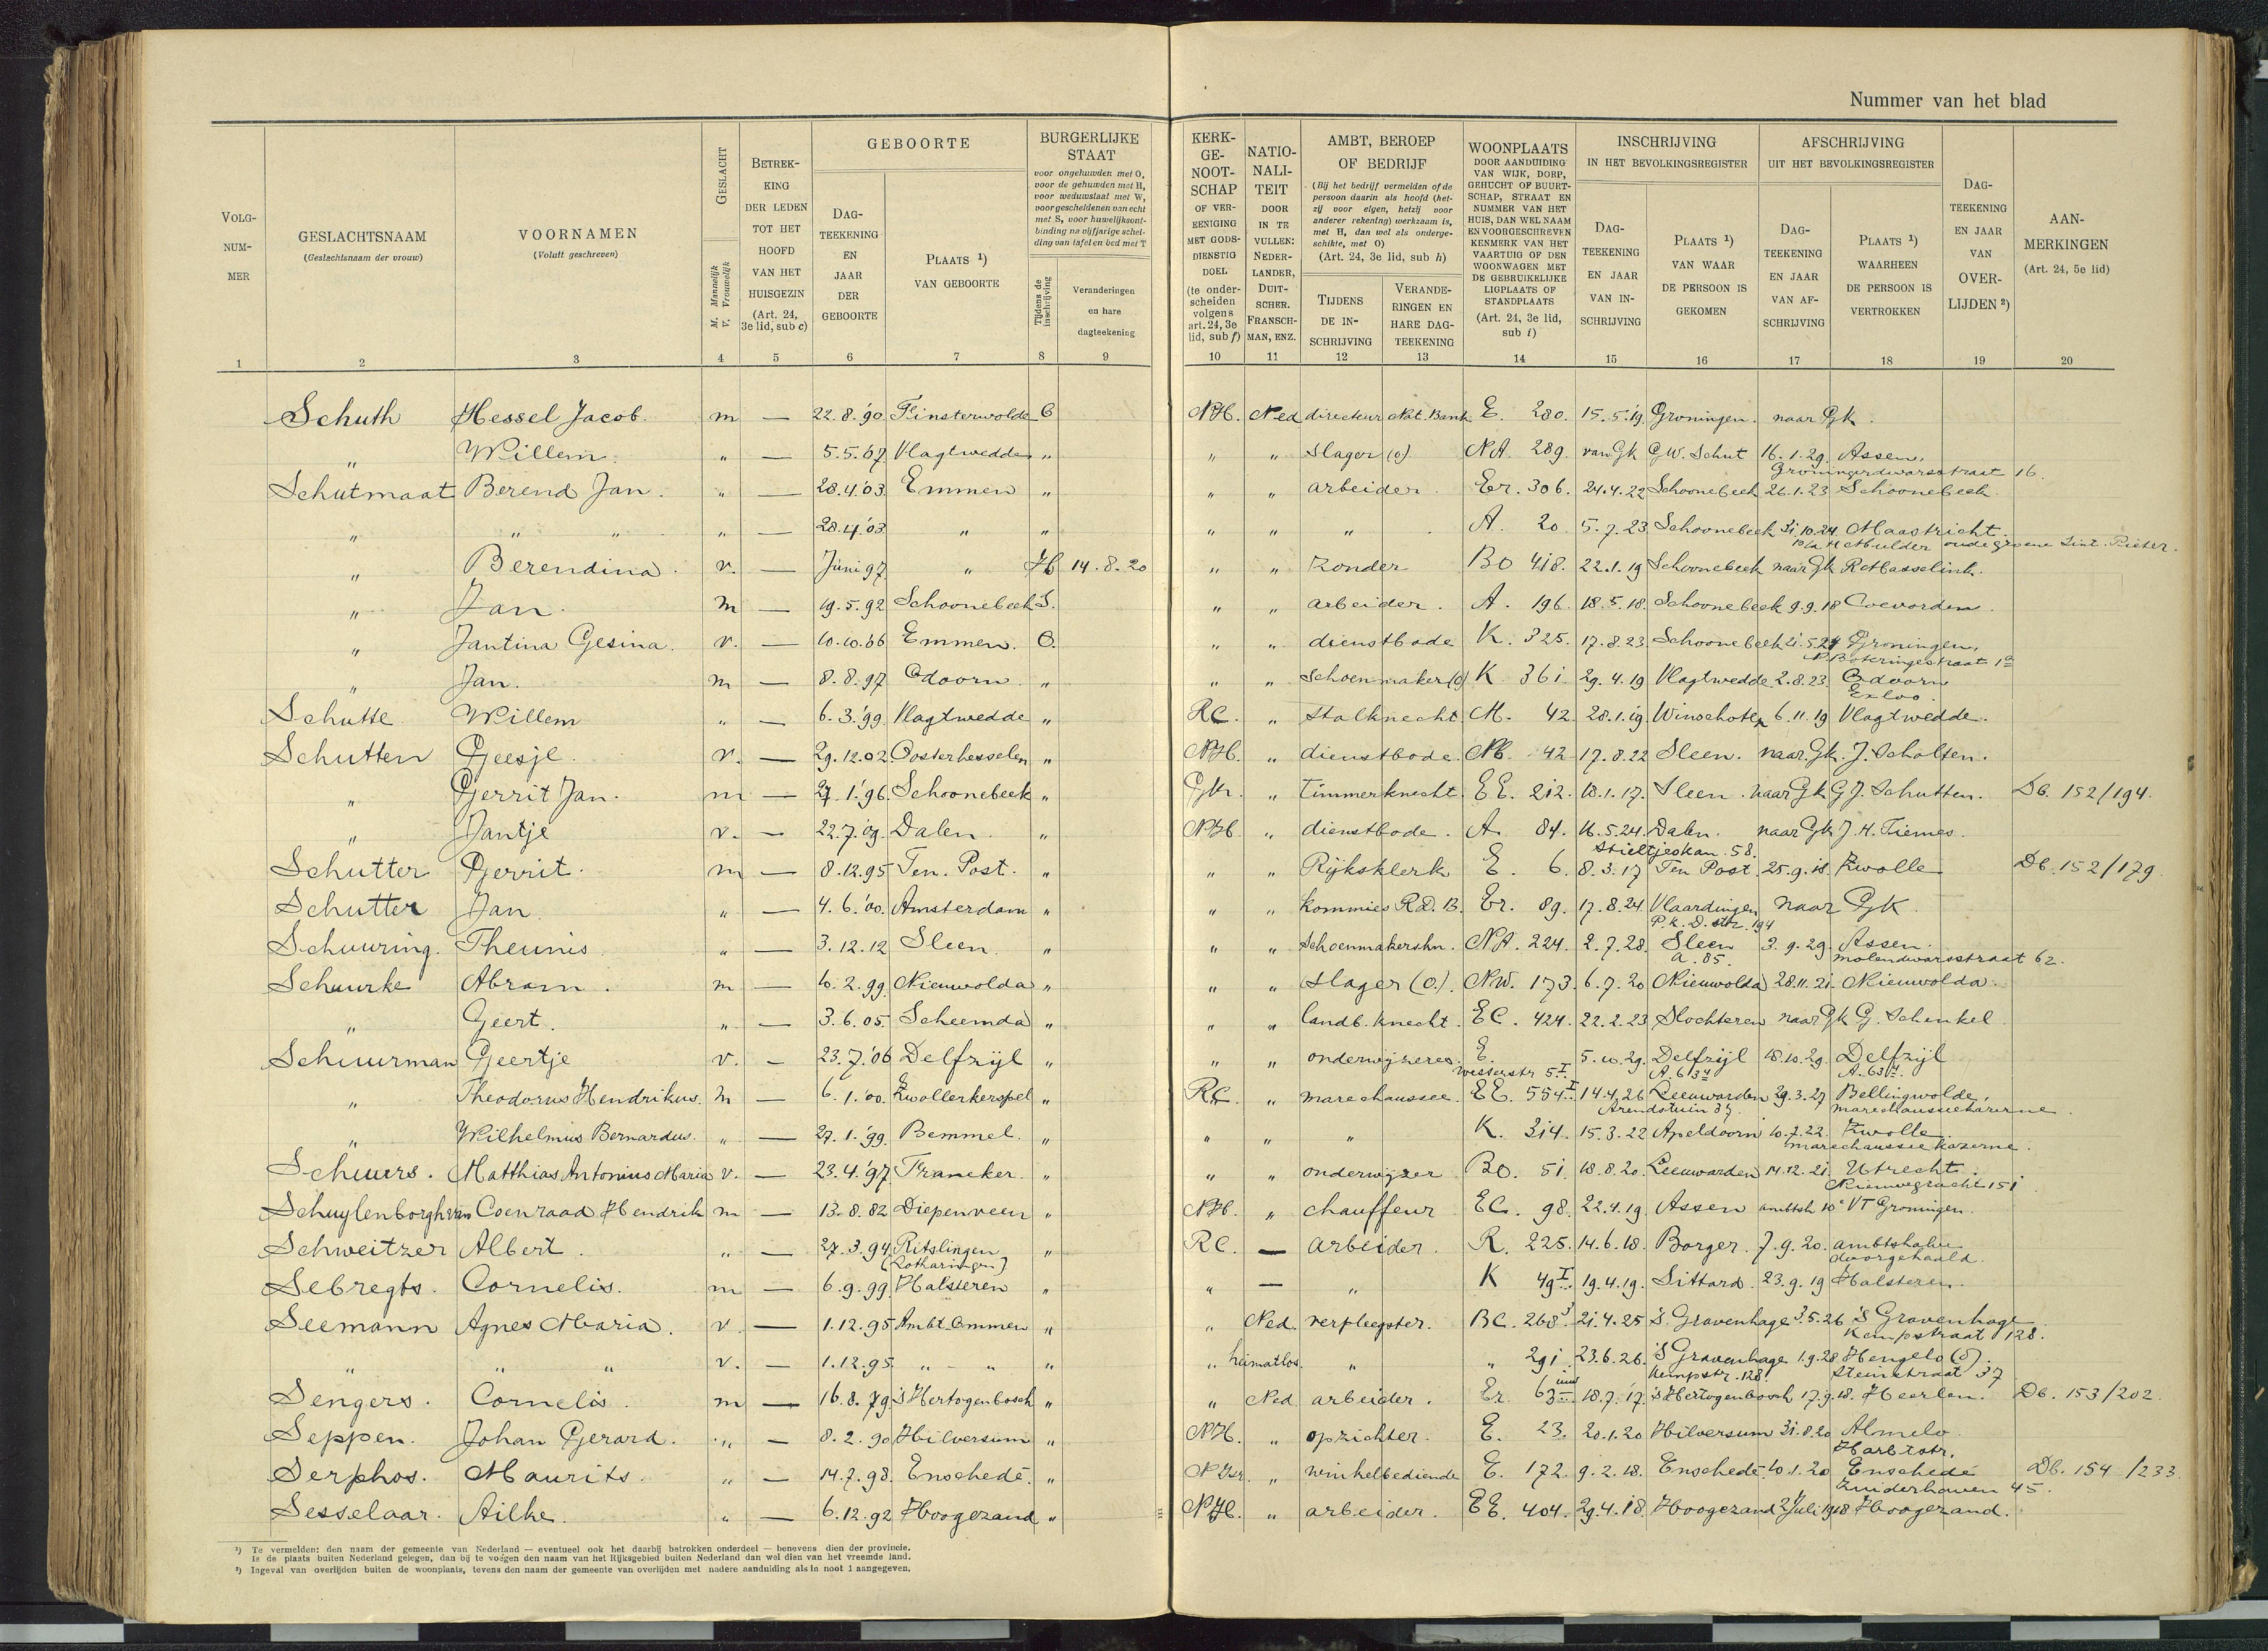 Nummer van het blad
VOLG-NUM-MER 1
GESLACHTSNAAM (Geslachtsnaam der vrouw) 2
VOORNAMEN (Voluit geschreven) 3
GESLACHT M. Mannelijk V. Vrouwelijk 4
BETREK-KING DER LEDEN TOT HET HOOFD VAN HET HUISGEZIN (Art. 24, 3e lid, sub c) 5
GEBOORTE
DAG-TEEKENING EN JAAR DER GEBOORTE 6
PLAATS ¹) VAN GEBOORTE 7
BURGERLIJKE STAAT voor ongehuwden met O, voor de gehuwden met H, voor weduwstaat met W, voor gescheidenen van echt met S, voor huwelijksontbinding na vijfjarige scheiding van tafel en bed met T
Tijdens de inschrijving 8
Veranderingen en hare dagteekening 9
KERK-GE-NOOT-SCHAP OF VER-EENIGING MET GODS-DIENSTIG DOEL (te onderscheiden volgens art. 24, 3e lid, sub f) 10
NATIO-NALI-TEIT DOOR IN TE VULLEN: NEDER-LANDER, DUIT-SCHER. FRANSCH-MAN, ENZ. 11
AMBT, BEROEP OF BEDRIJF (Bij het bedrijf vermelden of de persoon daarin als hoofd (hetzij voor eigen, hetzij voor anderer rekening) werkzaam is, met H, dan wel als ondergeschikte, met O) (Art. 24, 3e lid, sub h)
TIJDENS DE IN-SCHRIJVING 12
VERANDE-RINGEN EN HARE DAG-TEEKENING 13
WOONPLAATS DOOR AANDUIDING VAN WIJK, DORP, GEHUCHT OF BUURTSCHAP, STRAAT EN NUMMER VAN HET HUIS, DAN WEL NAAM EN VOORGESCHREVEN KENMERK VAN HET VAARTUIG OF DEN WOONWAGEN MET DE GEBRUIKELIJKE LIGPLAATS OF STANDPLAATS (Art. 24, 3e lid, sub i) 14
INSCHRIJVING IN HET BEVOLKINGSREGISTER
DAG-TEEKENING EN JAAR VAN IN-SCHRIJVING 15
PLAATS ¹) VAN WAAR DE PERSOON IS GEKOMEN 16
AFSCHRIJVING UIT HET BEVOLKINGSREGISTER
DAG-TEEKENING EN JAAR VAN AF-SCHRIJVING 17
PLAATS ¹) WAARHEEN DE PERSOON IS VERTROKKEN 18
DAG-TEEKENING EN JAAR VAN OVER-LIJDEN ²) 19
AAN-MERKINGEN (Art. 24, 5e lid) 20
Schuth Hessel Jacob. m — 22.8.'90 Finsterwolde O NH. Ned directeur Nat. Bank E. 280. 15.5.'19 Groningen. naar Gk.
" Willem. " — 5.5.'07 Vlagtwedde " " " slager (o) NA 289. van Gk G.W. Schut 16.1.29. Assen,
Groningerdwarsstraat 16.
Schutmaat Berend Jan. " — 28.4.'03 Emmen " " " arbeider. Er. 306. 24.4.22 Schoonebeek 26.1.23 Schoonebeek.
" " " " — 28.4.'03 " " " " " A. 20 5.7.23 Schoonebeek 31.10.24. Maastricht.
p/a H Mulder oude groene Sint. Pieter.
" Berendina. v. — Juni 97 " H 14.8.20 " " zonder BO 418. 22.1.19 Schoonebeek naar Gk R Masselink.
" Jan. m — 19.5.92 Schoonebeek S. " " arbeider. A. 196. 18.5.18. Schoonebeek 9.9.18 Coevorden.
" Jantina Gesina. v. — 10.10.'06 Emmen. O. " " dienstbode K. 325. 17.8.23 Schoonebeek 21.5.24 Groningen,
N. Boteringestraat 1a
" Jan. m — 8.8.97 Odoorn " " " schoenmaker (o) K 361 29.4.19 Vlagtwedde 2.8.23. Odoorn
Exloo.
Schutte Willem " — 6.3.'99 Vlagtwedde " RC. " stalknecht M. 42. 28.1.19. Winschoten 6.11.19 Vlagtwedde.
Schutten Geesje. v. — 29.12.02 Oosterhesselen " NH. " dienstbode. NB. 42 17.8.22 Sleen. naar Gk. J. Scholten.
" Gerrit Jan. m — 27.1.'96. Schoonebeek " Gk. " timmerknecht. EE. 212. 18.1.17. Sleen. naar Gk G J. Schutten. Db. 152/194.
" Jantje v. — 22.7.'09. Dalen. " NH. " dienstbode. A. 84. 16.5.24. Dalen. naar Gk J. H. Tiemes.
Stieltjeskan. 58.
Schutter Gerrit. m — 8.12.95 Ten. Post. " " " Rijksklerk E. 6. 8.3.17 Ten Post 25.9.18. Zwolle Db. 152/179.
Schutter Jan. " — 4.6.'00. Amsterdam " " " kommies R.D. B. Er. 89. 17.8.24 Vlaardingen naar GK.
P.K.D. str. 194
Schuuring. Theunis " — 3.12.12 Sleen. " " " Schoenmakerskn. NA. 224. 2.7.28. Sleen 3.9.29. Assen.
A. 85. molendwarsstraat 62.
Schuurke Abram. m — 10.2.99. Nieuwolda " " " slager (o.). NW. 173. 6.7.20 Nieuwolda 28.11.21. Nieuwolda.
" Geert. " — 3.6.05. Scheemda " " " landb. knecht. EC. 424. 22.2.23 Slochteren naar Gk G. Schenkel
Schuurman Geertje v. — 23.7.'06 Delfzijl " " " onderwijzeres. E. 5.10.29. Delfzijl 18.10.29. Delfzijl
Wesserstr 5 I. A. 63 A. 63
" Theodorus Hendrikus. m — 6.1.'00. Zwollerkerspel " RC. " marechaussee. EE. 554 I 14.4.26 Leeuwarden 29.3.27 Bellingwolde,
Arendstuin 37. marechausseekazerne
" Wilhelmus Bernardus. " — 27.1.'99. Bemmel. " " " " K. 314. 15.3.22 Apeldoorn 10.7.22. Zwolle
marechausseekazerne.
Schuurs. Matthias Antonius Maria v. — 23.4.'97 Franeker. " " " onderwijzer BO. 51 18.8.20. Leeuwarden 14.12.21. Utrecht.
Nieuwegracht 151
Schuylenborgh van Coenraad Hendrik m — 13.8.82 Diepenveen " NH. " chauffeur EC. 98. 22.4.19. Assen ambtsh 10e VT Groningen.
Schweitzer Albert. " — 27.3.94. Ritslingen " RC. — arbeider. R. 225. 14.6.18. Borger. 7.9.20. ambtshalve
(Lotharingen) doorgehaald.
Sebregts. Cornelis. m — 6.9.99. Halsteren " " — " K 49 I 19.4.19. Sittard. 23.9.19 Halsteren.
Seemann Agnes Maria. v. — 1.12.95 Ambt Ommen " " Ned. verpleegster. BC. 268 3 21.4.25 's Gravenhage 3.5.26 's Gravenhage
Kempstraat 128.
" " " v. — 1.12.95. " - " " " heimatlos. " " 291 23.6.26. 's Gravenhage 1.9.28 Hengelo (O).
Kempstr. 128. Steinstraat 37
Sengers. Cornelis. m — 16.8.79. 's Hertogenbosch " " Ned. arbeider. Er. 63 18.7.'17. 's Hertogenbosch 17.9.18. Heerlen. Db. 153/202.
Seppen. Johan Gerard. " — 8.2.90 Hilversum " NH. " opzichter. E. 23. 20.1.20 Hilversum 31.8.20 Almelo
Harbtstr.
Serphos. Maurits. " — 14.7.98. Enschedé. " N Isr. " winkelbediende E. 172. 9.2.18. Enschedé. 10.1.20 Enschedé Db. 154/233
Zuiderhaven 45.
Sesselaar. Ailke. " — 6.12.92 Hoogezand " NH. " arbeider. EE. 404. 29.4.18. Hoogezand 2 Juli 1918 Hoogezand.
¹) Te vermelden: den naam der gemeente van Nederland — eventueel ook het daarbij betrokken onderdeel — benevens dien der provincie.
Is de plaats buiten Nederland gelegen, dan bij te voegen den naam van het Rijksgebied buiten Nederland dan wel dien van het vreemde land.
²) Ingeval van overlijden buiten de woonplaats, tevens den naam der gemeente van overlijden met nadere aanduiding als in noot 1 aangegeven.